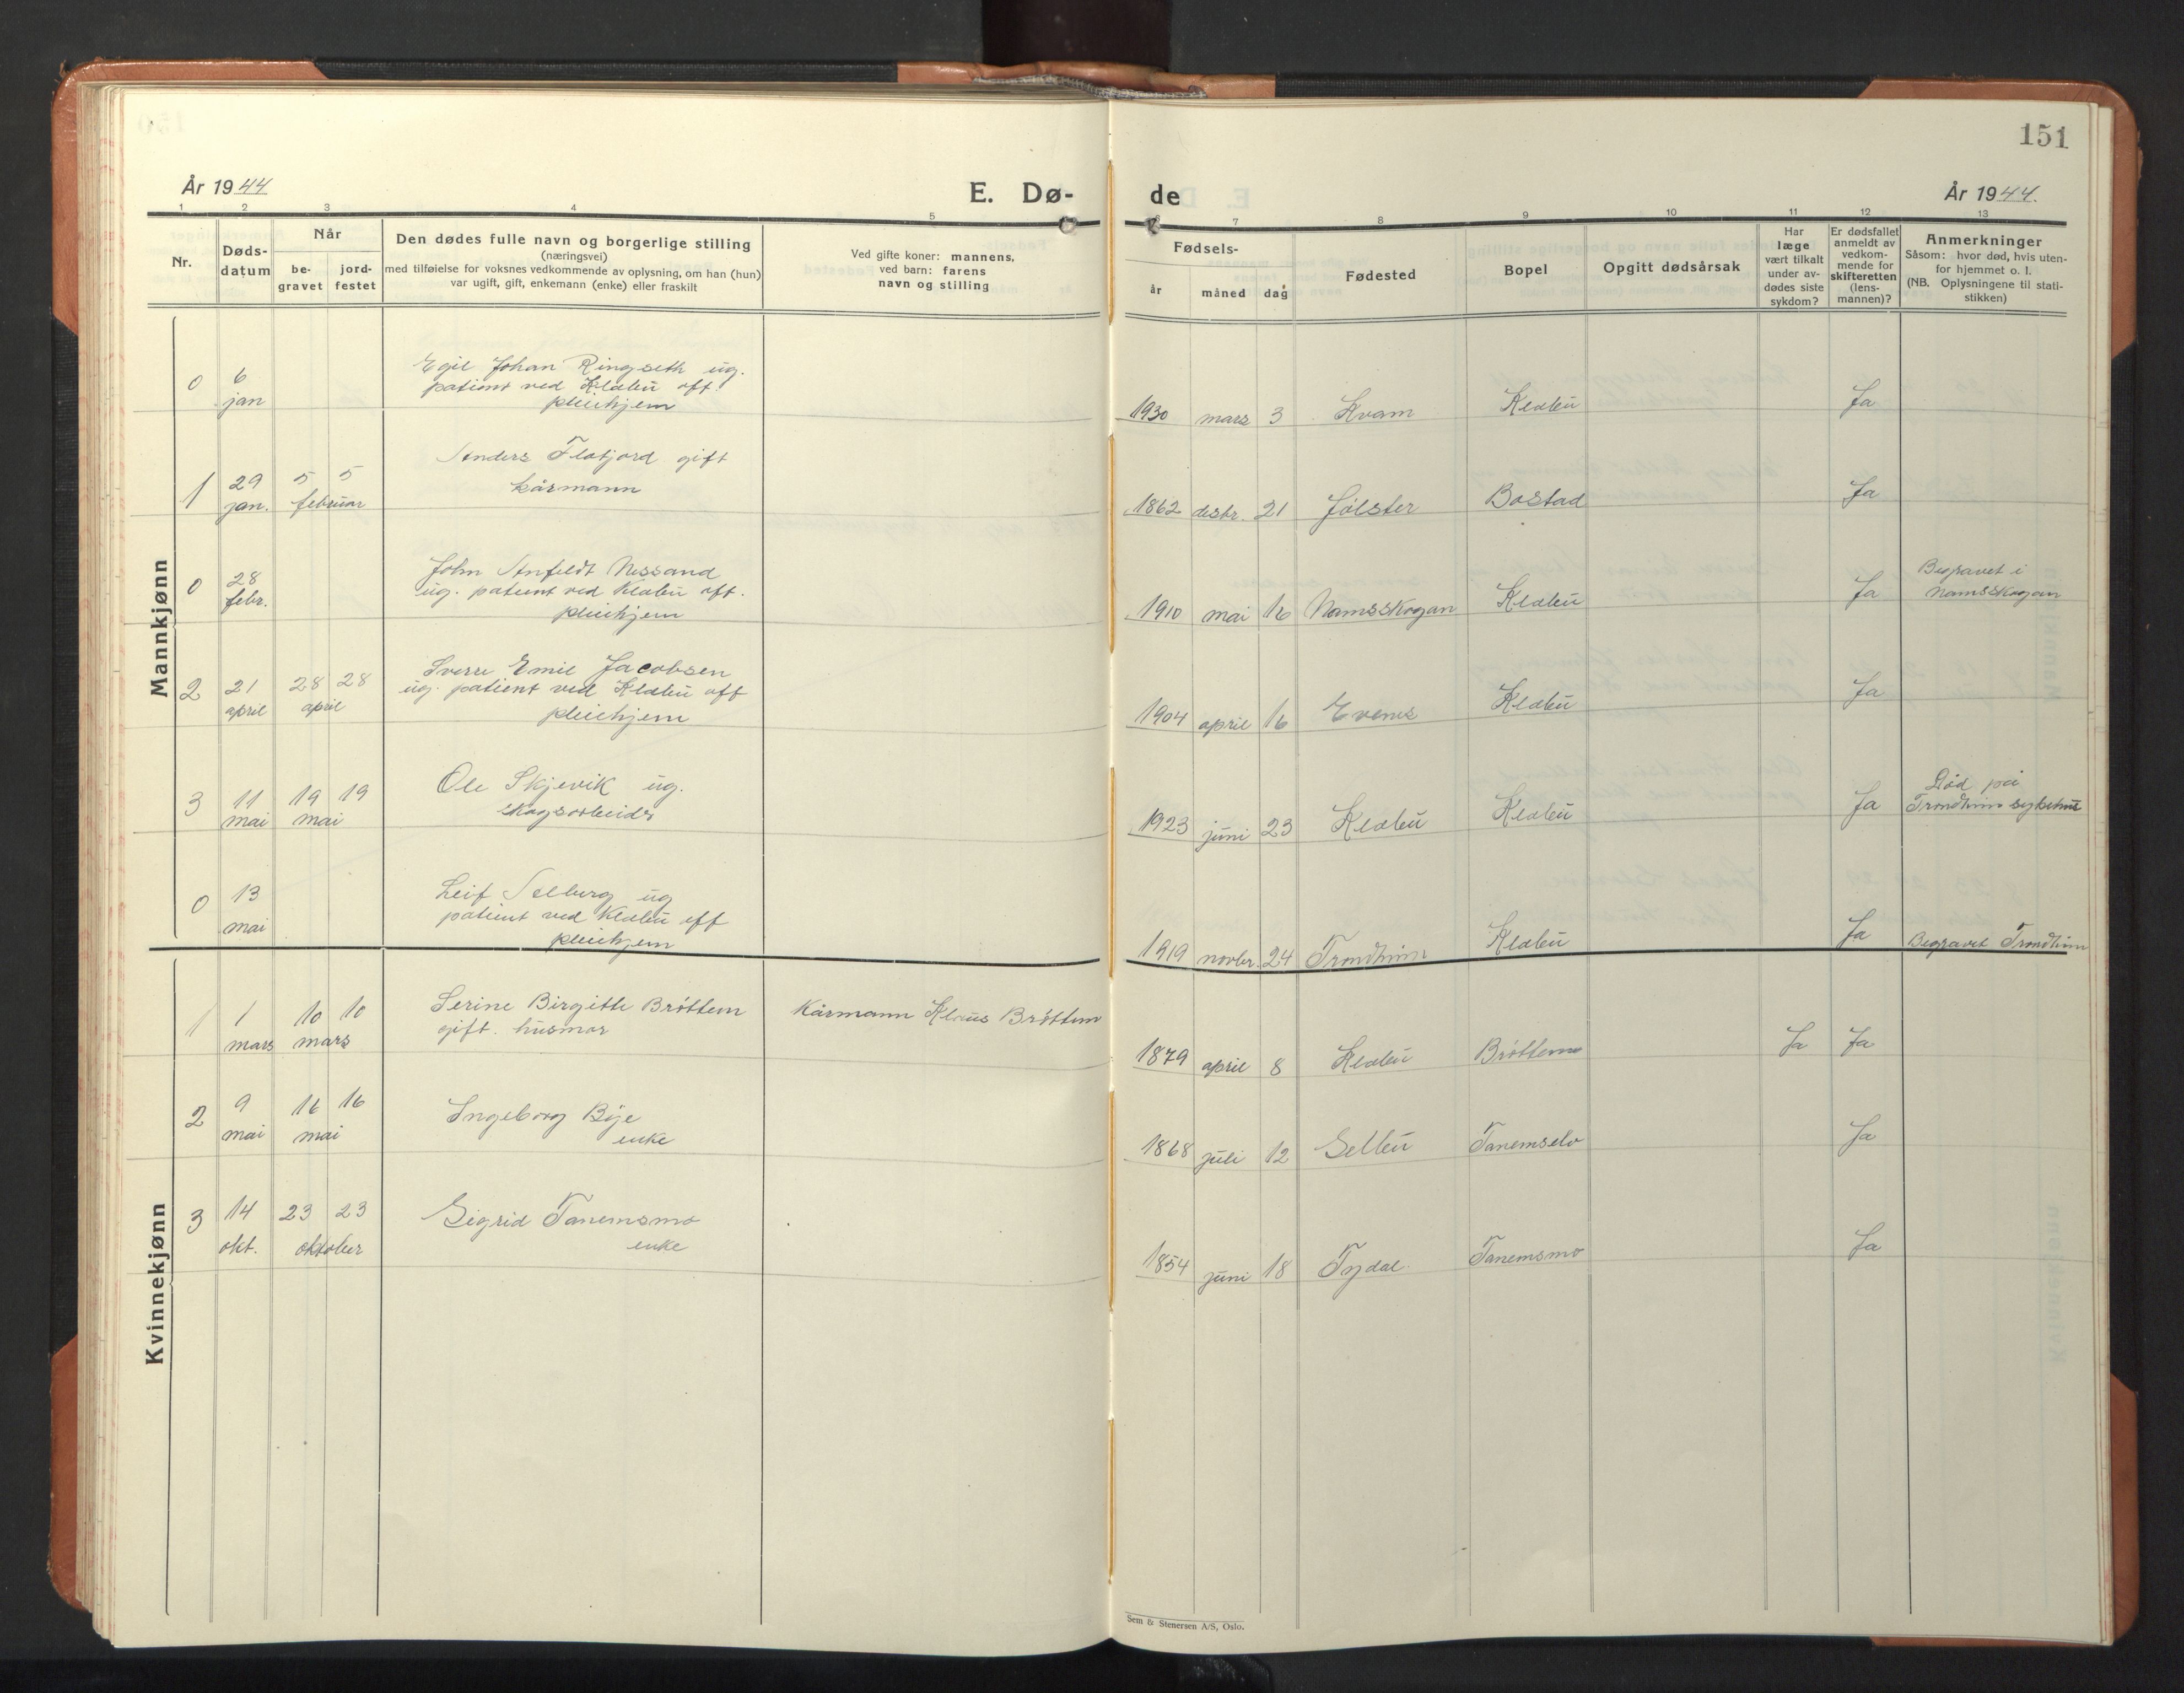 151
År 1944
E. Dø-
de
År 1944.
1 2 3 4 5 6 7 8 9 10 11 12 13
Nr.
Døds-
datum
Når
be-
gravet
jord-
festet
Den dødes fulle navn og borgerlige stilling
(næringsvei)
med tilføielse for voksnes vedkommende av oplysning, om han (hun)
var ugift, gift, enkemann (enke) eller fraskilt
Ved gifte koner: mannens,
ved barn: farens
navn og stilling
Fødsels-
år måned dag
Fødested
Bopel
Opgitt dødsårsak
Har
læge
vært tilkalt
under av-
dødes siste
sykdom?
Er dødsfallet
anmeldt av
vedkom-
mende for
skifteretten
(lens-
mannen)?
Anmerkninger
Såsom: hvor død, hvis uten-
for hjemmet o. l.
(NB. Oplysningene til stati-
stikken)
Mannkjønn
0 6 jan
Egil Johan Ringseth ug.
patient ved Klæbu off.
pleiehjem
1930 mars 3 Kvam Klæbu Ja
1 29 jan. 5 5 februar
Anders Flatjord gift
kårmann
1862 desbr. 21 Jølster Bostad Ja
0 28 febr.
John Anfeldt Nessand
ug. patient ved Klæbu off.
pleiehjem
1910 mai 16 Namsskogan Klæbu Ja
Begravet i
Namsskogan
2 21 april 28 28 april
Sverre Emil Jacobsen
ug. patient ved Klæbu off
pleiehjem
1904 april 16 Evenes Klæbu Ja
3 11 mai 19 19 mai
Ole Skjevik ug.
skogsarbeider
1923 juni 23 Klæbu Klæbu Ja
Død på
Trondheim sykehus
0 13 mai
Leif Selburg ug
patient ved Klæbu off
pleiehjem
1919 novbr. 24 Trondheim Klæbu Ja Begravet Trondheim
Kvinnekjønn
1 1 mars 10 10 mars
Serine Birgitte Brøttem
gift. husmor
Kårmann Klaus Brøttem
1879 april 8 Klæbu Brøttem Ja Ja
2 9 mai 16 16 mai
Ingeborg Bye
enke
1868 juli 12 Selbu Tanemselv Ja
3 14 okt. 23 23 oktober
Sigrid Tanemsmo
enke
1854 juni 18 Tydal. Tanemsmo Ja
Sem & Stenersen A/S, Oslo.